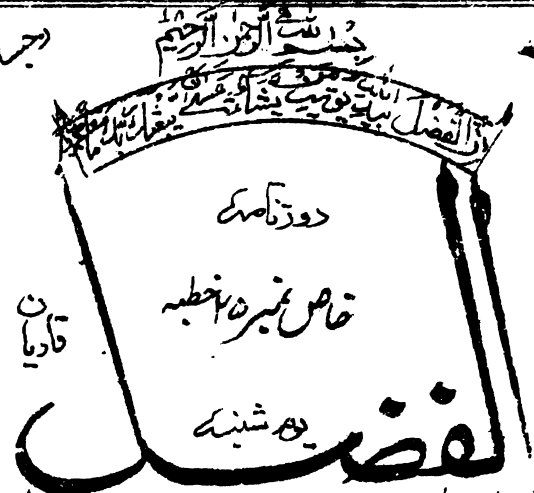 بسم اللہ الرحمن الرحیم
ان الفضل بید اللہ یؤتیہ من یشاء عسیٰ ان یبعثک ربک مقاما محمودا
روزنامہ
خاص نمبر خطبہ
قادیان
یوم شنبہ
الفضل